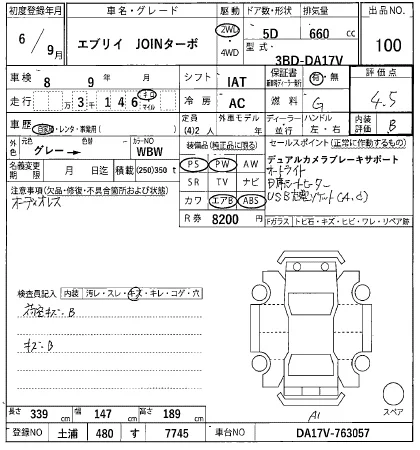 初度登録年月 車名・グレード 駆動 ドア数・形状 排気量 出品NO.
6/9月 エブリイ JOINターボ 2WD・4WD 5D 660cc 100
型式 3BD-DA17V
車検 8 9 年 月 シフト IAT 保証書 有・無 評価点
走行 万3千146 キロ マイル 冷房 AC 燃料 G 4.5
車歴 自家用・レンタ・事業用( ) 定員 (4)2人 外車モデル年 ディーラー 並行 ハンドル 左・右 内装評価 B
外色 元色 グレー→ 色替 カラーNO WBW 装備品(純正品に限る) セールスポイント(正常に作動するもの)
名義変更期限 月 日迄 積載 (250)350 t PS PW AW デュアルカメラブレーキサポート
オートライト
注意事項(欠品・修復・不具合箇所および状態) SR TV ナビ
オーディオレス カワ エアB ABS
R券 8200円 Fガラス トビ石・キズ・ヒビ・ワレ・リペア跡
検査員記入 内装 汚レ・スレ・キズ・キレ・コゲ・穴
荷室キズ・B
キズ・B
A1
スペア
長さ 339cm 幅 147cm 高さ 189cm
登録NO 土浦 480 す 7745 車台NO DA17V-763057